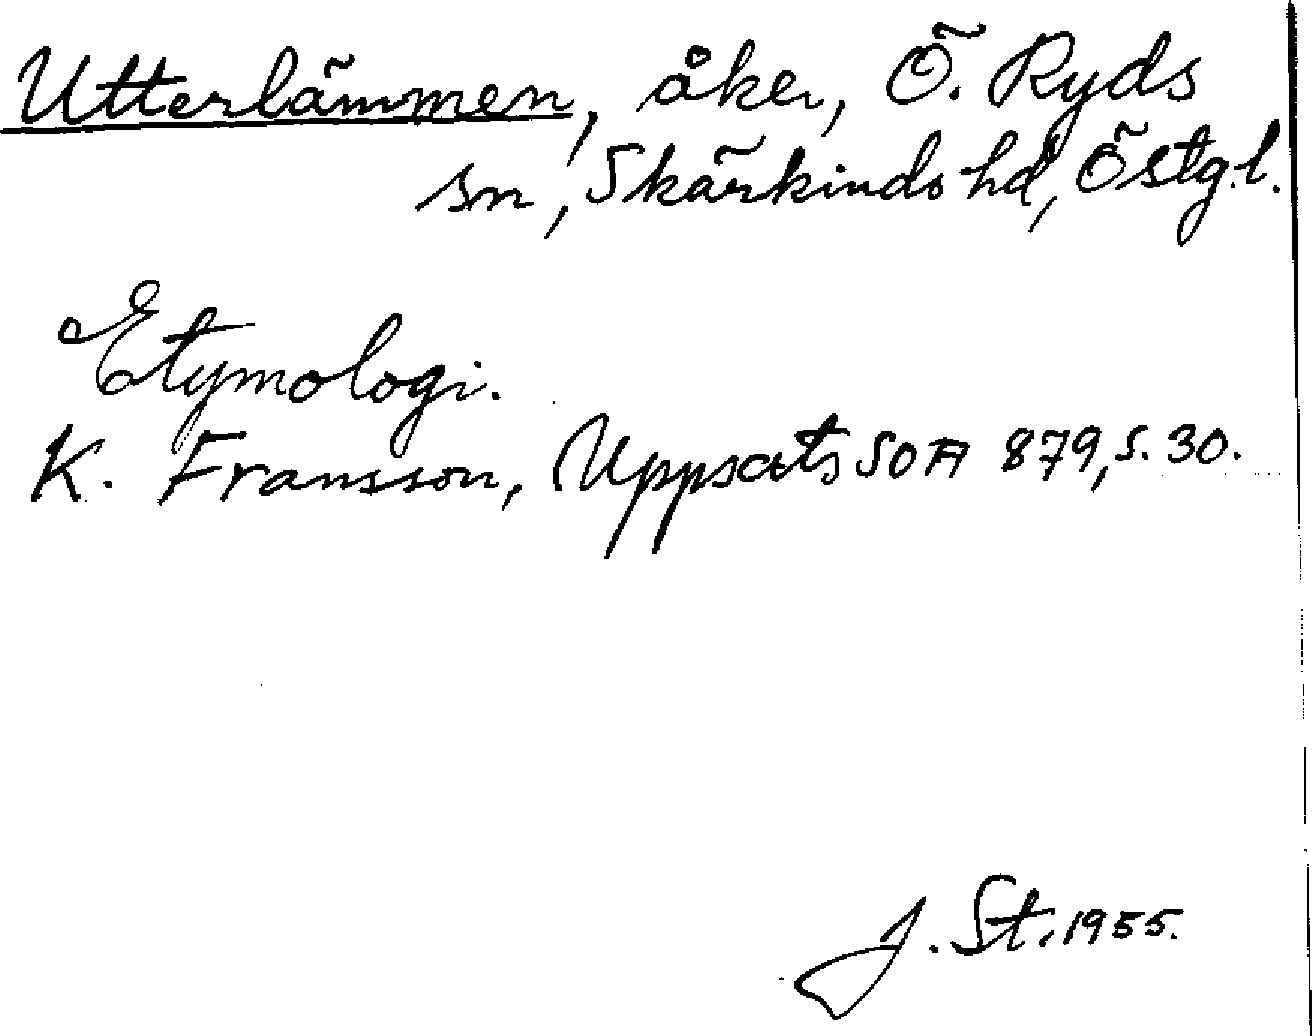 Utterlämmen, åker, Ö. Ryds
sn, Skärkinds hd, Östg.l.
Etymologi.
K. Fransson, Uppsats SOA 879, s. 30.
J. St. 1955.